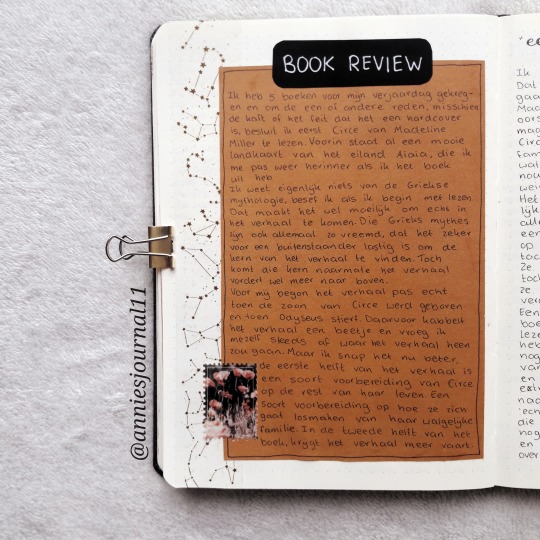 BOOK REVIEW
Ik heb 5 boeken voor mijn verjaardag gekreg-
en en om de een of andere reden, misschien
de kaft of het feit dat het een hardcover
is, besluit ik eerst Circe van Madeline
Miller te lezen. Voorin staat al een mooie
landkaart van het eiland Aiaia, die ik
me pas weer herinner als ik het boek
uit heb.
Ik weet eigenlijk niets van de Griekse
mythologie, besef ik als ik begin met lezen.
Dat maakt het wel moeilijk om echt in
het verhaal te komen. Die Grieks mythes
zijn ook allemaal zo vreemd, dat het zeker
voor een buitenstaander lastig is om de
kern van het verhaal te vinden. Toch
komt die kern naarmate het verhaal
vordert wel meer naar boven.
Voor mij begon het verhaal pas echt
toen de zoon van Circe werd geboren
en toen Odyseus stierf. Daarvoor kabbelt
het verhaal een beetje en vroeg ik
mezelf steeds af waar het verhaal heen
zou gaan. Maar ik snap het nu beter,
de eerste helft van het verhaal is
een soort voorbereiding van Circe
op de rest van haar leven. Een
soort voorbereiding op hoe ze zich
gaat losmaken van haar walgelijke
familie. In de tweede helft van het
boek, krijgt het verhaal meer vaart.
@anniesjournal11
Ik
Dat